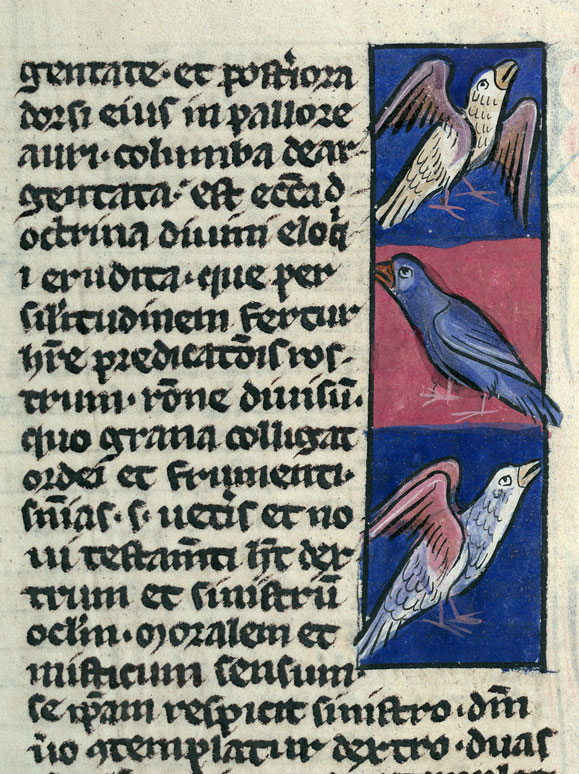 gentate· et post̾iora
dorsi eius in pallore
auri· columba dear
gentata· est ecc̄ad
octrina diuini eloq̄
i erudita· que per
sil̾itudinem fertur
hr̄e predicatōis ros-
trum· rōne diuisū·
quo grana colligat
ordei et frumenti·
sn̄ias· s· uetis et no
ui testam̄ti h̄t dex
trum et sinistrū
oclm̄· moralem et
misticum sensum·
se ip̄am respicit sinistro· dm̄
u̾o ꝯtemplatur dextro· duas